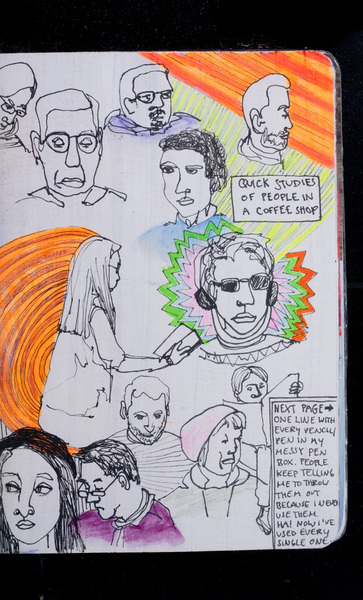 QUICK STUDIES
OF PEOPLE IN
A COFFEE SHOP
NEXT PAGE→
ONE LINE WITH
EVERY PENCIL/
PEN IN MY
MESSY PEN
BOX. PEOPLE
KEEP TELLING
ME TO THROW
THEM OUT
BECAUSE I NEVER
USE THEM.
HA! NOW I'VE
USED EVERY
SINGLE ONE.